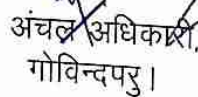 अंचल अधिकारी,
गोविन्दपरु।